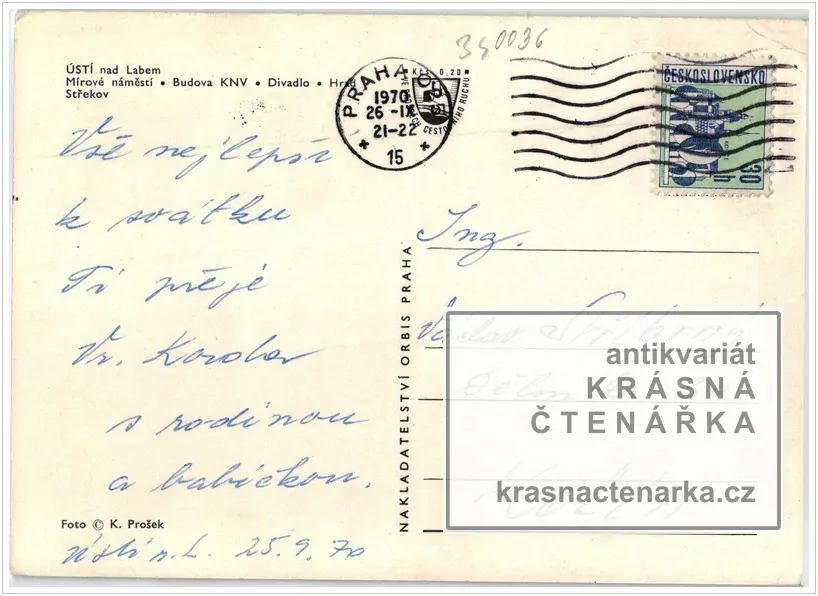 340036
ÚSTÍ nad Labem
Mírové náměstí • Budova KNV • Divadlo • Hrad
Střekov
PRAHA
1970
26 -IX
21-22
15
KČS 0,20
CESTOVNÍHO RUCHU
ČESKOSLOVENSKO
30 h
Vše nejlepší
k svátku
Ti přeje
Vr.
s rodinou
a babičkou.
Ústí n. L. 25. 9. 70
Foto © K. Prošek
NAKLADATELSTVÍ ORBIS PRAHA
Ing.
Václav
antikvariát
KRÁSNÁ
ČTENÁŘKA
krasnactenarka.cz